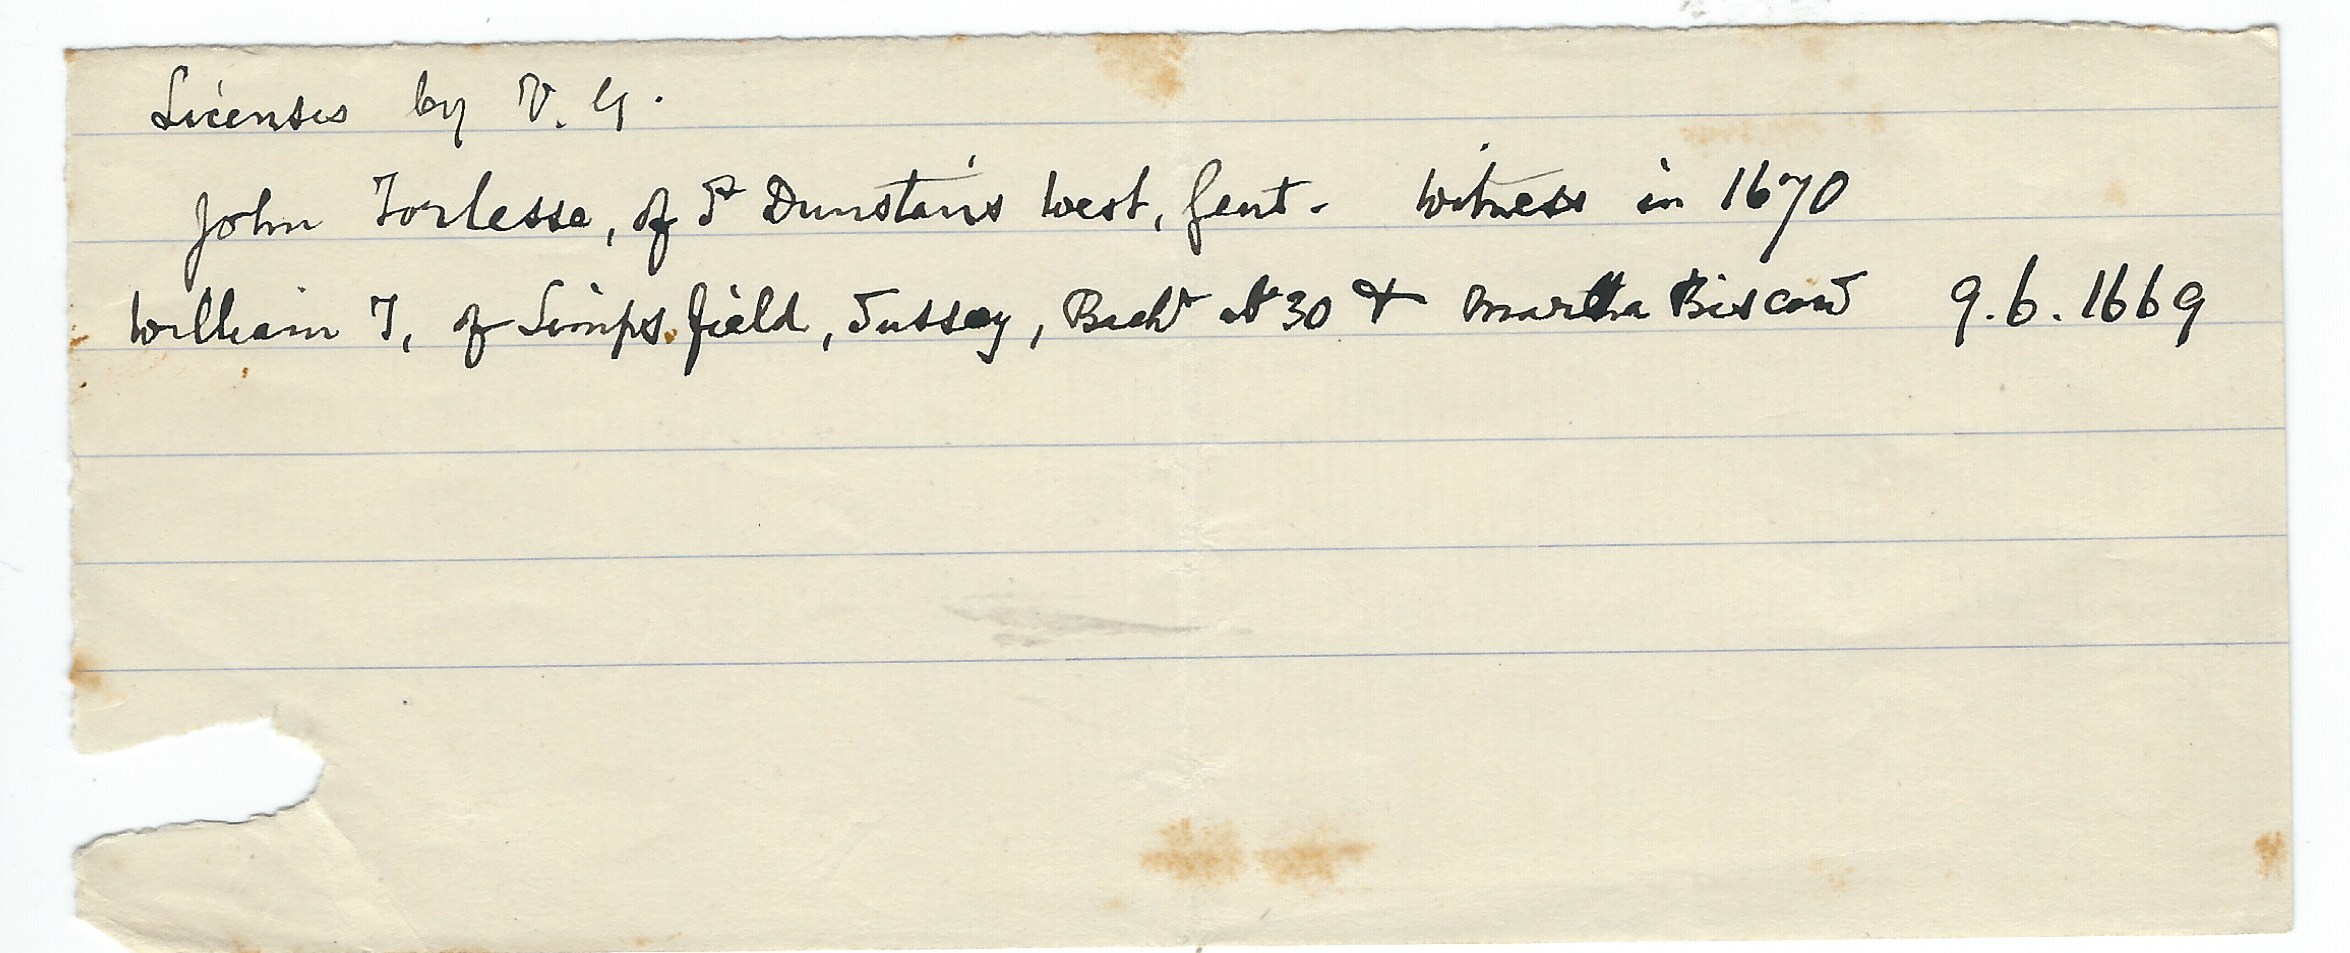 Licenses by V. G.
John Torlesse, of St Dunstan's West, Gent. Witness in 1670
William T, of Limpsfield, Sussey, Bachr at 30 & Martha Biscow 9.6.1669